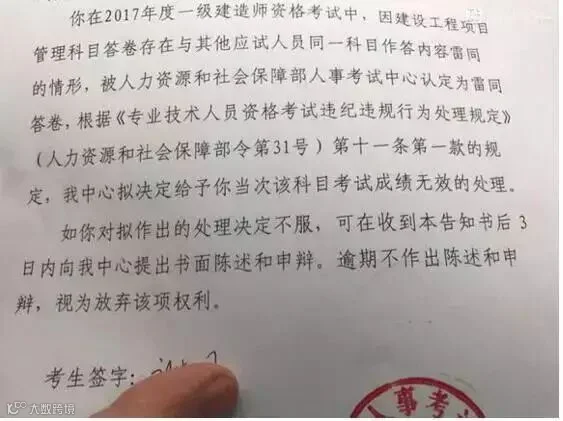 你在2017年度一级建造师资格考试中，因建设工程项目
管理科目答卷存在与其他应试人员同一科目作答内容雷同
的情形，被人力资源和社会保障部人事考试中心认定为雷同
答卷，根据《专业技术人员资格考试违纪违规行为处理规定》
（人力资源和社会保障部令第31号）第十一条第一款的规
定，我中心拟决定给予你当次该科目考试成绩无效的处理。
如你对拟作出的处理决定不服，可在收到本告知书后 3
日内向我中心提出书面陈述和申辩。逾期不作出陈述和申
辩，视为放弃该项权利。
考生签字：
人事考
大数跨境